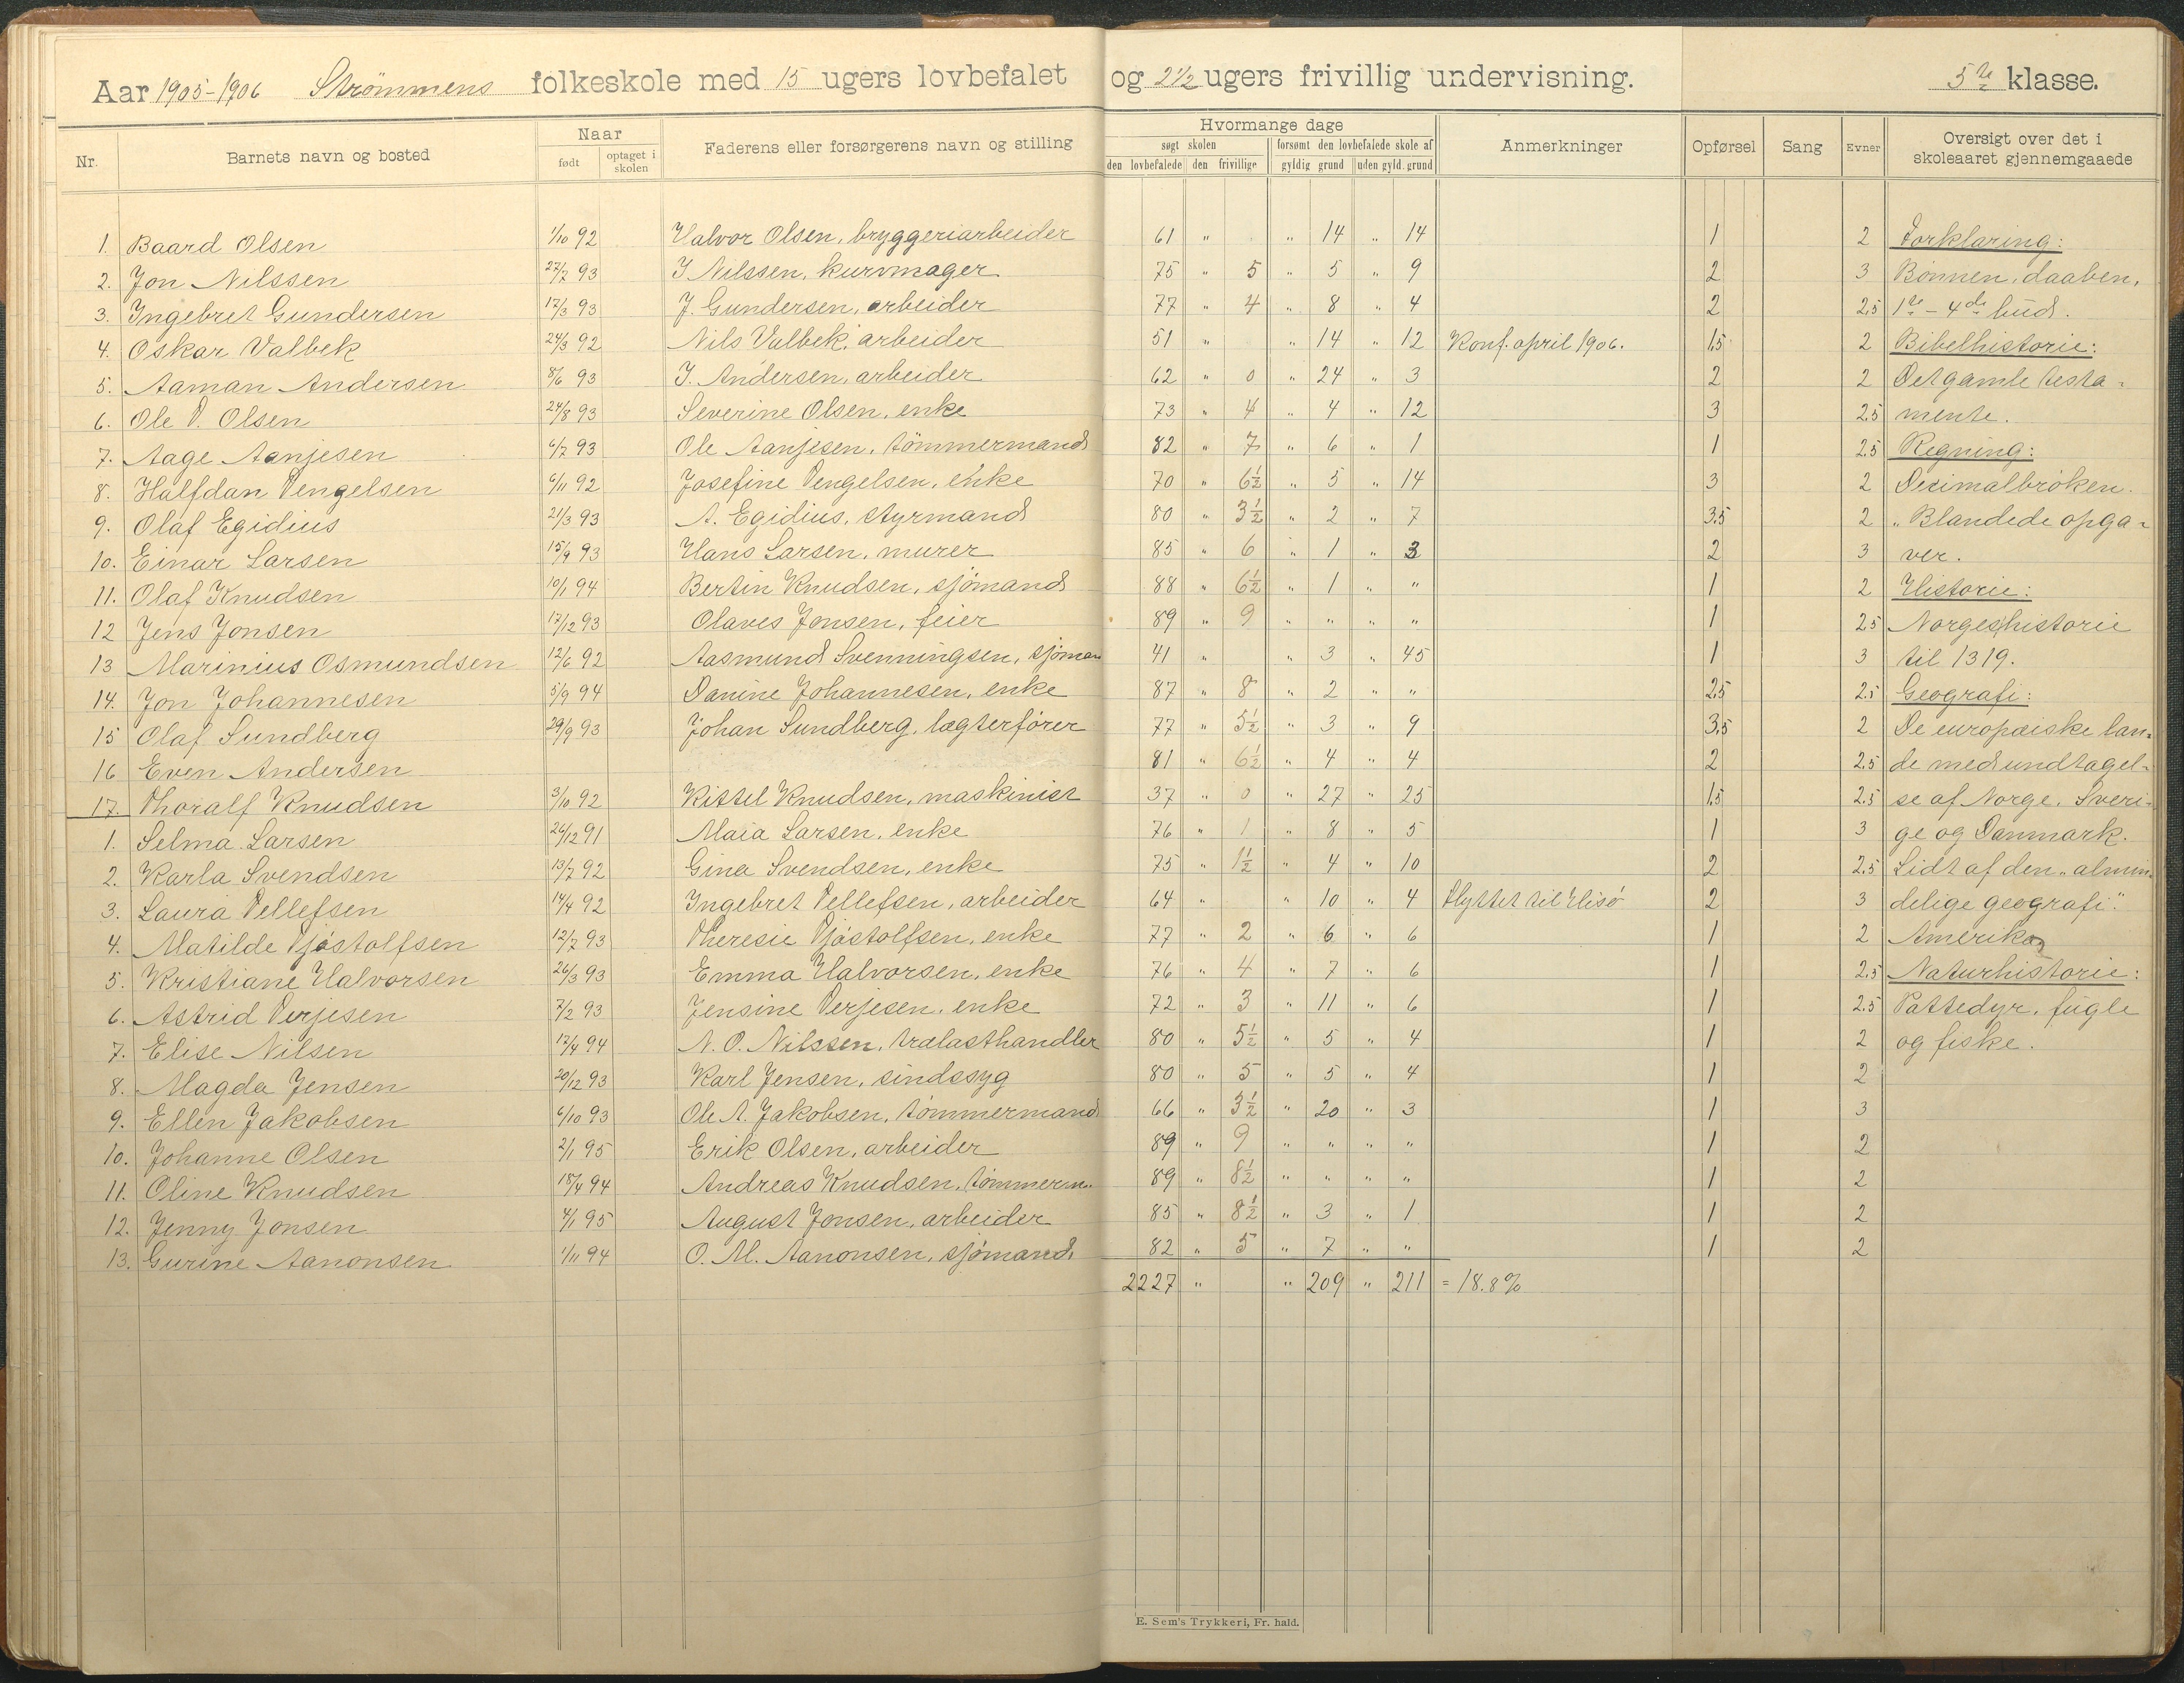 Aar 1905-1906 Strømmens folkeskole med 15 ugers lovbefalet og 2 1/2 ugers frivillig undervisning. 5te klasse.
Nr. Barnets navn og bosted Naar født optaget i skolen Faderens eller forsørgerens navn og stilling Hvormange dage søgt skolen den lovbefalede den frivillige forsømt den lovbefalede skole af gyldig grund uden gyld. grund Anmerkninger Opførsel Sang Evner Oversigt over det i skoleaaret gjennemgaaede
1. Baard Olsen 1/10 92 Halvor Olsen, bryggeriarbeider 61 " " 14 " 14 1 2 Forklaring:
2. Jon Nilssen 27/7 93 J. Nilssen, kurvmager 75 " 5 " 5 " 9 2 3 Bønnen, daaben,
3. Ingebret Gundersen 17/3 93 J. Gundersen, arbeider 77 " 4 " 8 " 4 2 2,5 1ste - 4de bud.
4. Oskar Valbek 24/3 92 Nils Valbek, arbeider 51 " " 14 " 12 Konf. april 1906. 1,5 2 Bibelhistorie:
5. Aaman Andersen 8/6 93 J. Andersen, arbeider 62 " 0 " 24 " 3 2 2 Det gamle testa-
6. Ole T. Olsen 24/8 93 Severine Olsen, enke 73 " 4 " 4 " 12 3 2,5 mente.
7. Aage Aanjesen 6/7 93 Ole Aanjesen, tømmermand 82 " 7 " 6 " 1 1 2,5 Regning:
8. Halfdan Tengelsen 6/11 92 Josefine Tengelsen, enke 70 " 6 1/2 " 5 " 14 3 2 Desimalbrøken.
9. Olaf Egidius 21/3 93 A. Egidius, styrmand 80 " 3 1/2 " 2 " 7 3,5 2 "Blandede opga-
10. Einar Larsen 15/9 93 Hans Larsen, murer 85 " 6 " 1 " 3 2 3 ver.
11. Olaf Knudsen 10/1 94 Bertin Knudsen, sjømand 88 " 6 1/2 " 1 " " 1 2 Historie:
12 Jens Jonsen 17/12 93 Olaves Jonsen, feier 89 " 9 " " " " 1 2,5 Norgeshistorie
13 Marinius Osmundsen 12/6 92 Aasmund Svenningsen, sjøman 41 " " 3 " 45 1 3 til 1319.
14. Jon Johannesen 5/9 94 Danine Johannesen, enke 87 " 8 " 2 " " 2,5 2,5 Geografi:
15 Olaf Sundberg 29/9 93 Johan Sundberg, lægterfører 77 " 5 1/2 " 3 " 9 3,5 2 De europæiske lan-
16 Even Andersen 81 " 6 1/2 " 4 " 4 2 2,5 de med undtagel-
17. Thoralf Knudsen 3/10 92 Kittel Knudsen, maskinist 37 " 0 " 27 " 25 1,5 2,5 se af Norge, Sveri-
1. Selma Larsen 26/12 91 Maia Larsen, enke 76 " 1 " 8 " 5 1 3 ge og Danmark.
2. Karla Svendsen 13/7 92 Gina Svendsen, enke 75 " 1 1/2 " 4 " 10 2 2,5 Lidt af den "almin-
3. Laura Tellefsen 14/4 92 Ingebret Tellefsen, arbeider 64 " " 10 " 4 flyttet til Hisø 2 3 delige geografi".
4. Matilde Tjøstolfsen 12/7 93 Theresie Tjøstolfsen, enke 77 " 2 " 6 " 6 1 2 Amerika
5. Kristiane Halvorsen 26/3 93 Emma Halvorsen, enke 76 " 4 " 7 " 6 1 2,5 Naturhistorie:
6. Astrid Terjesen 7/2 93 Jensine Terjesen, enke 72 " 3 " 11 " 6 1 2,5 Pattedyr, fugle
7. Elise Nilsen 17/4 94 N. O. Nilssen, trælasthandler 80 " 5 1/2 " 5 " 4 1 2 og fiske.
8. Magda Jensen 20/12 93 Karl Jensen, sindssyg 80 " 5 " 5 " 4 1 2
9. Ellen Jakobsen 6/10 93 Ole A. Jakobsen, tømmermand 66 " 3 1/2 " 20 " 3 1 3
10. Johanne Olsen 2/1 95 Erik Olsen, arbeider 89 " 9 " " " " 1 2
11. Oline Knudsen 18/4 94 Andreas Knudsen, tømmerm. 89 " 8 1/2 " " " " 1 2
12. Jenny Jonsen 4/1 95 August Jonsen, arbeider 85 " 8 1/2 " 3 " 1 1 2
13. Gurine Aanonsen 1/11 94 O. M. Aanonsen, sjømand 82 " 5 " 7 " " 1 2
2227 " " 209 " 211 = 18.8 %
E. Sem's Trykkeri, Fr. hald.